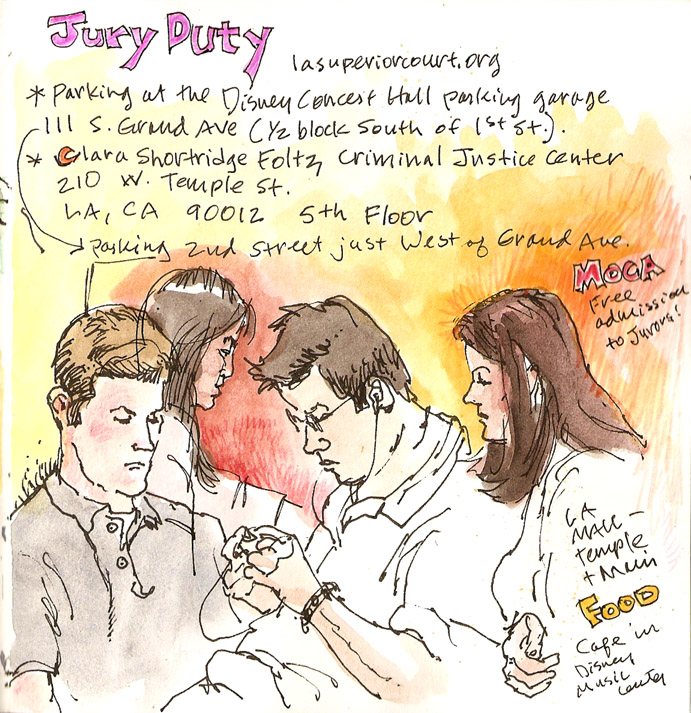 Jury Duty
lasuperiorcourt.org
* Parking at the Disney Concert Hall parking garage
111 S. Grand Ave (1/2 block South of 1st St.).
* Clara Shortridge Foltz Criminal Justice Center
210 W. Temple St.
LA, CA 90012 5th Floor
parking 2nd Street just West of Grand Ave.
MOCA
Free
admission
to Jurors!
LA
MALL -
Temple
+ Main
FOOD
Cafe in
Disney
Music
Center